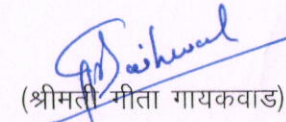 (श्रीमती गीता गायकवाड)